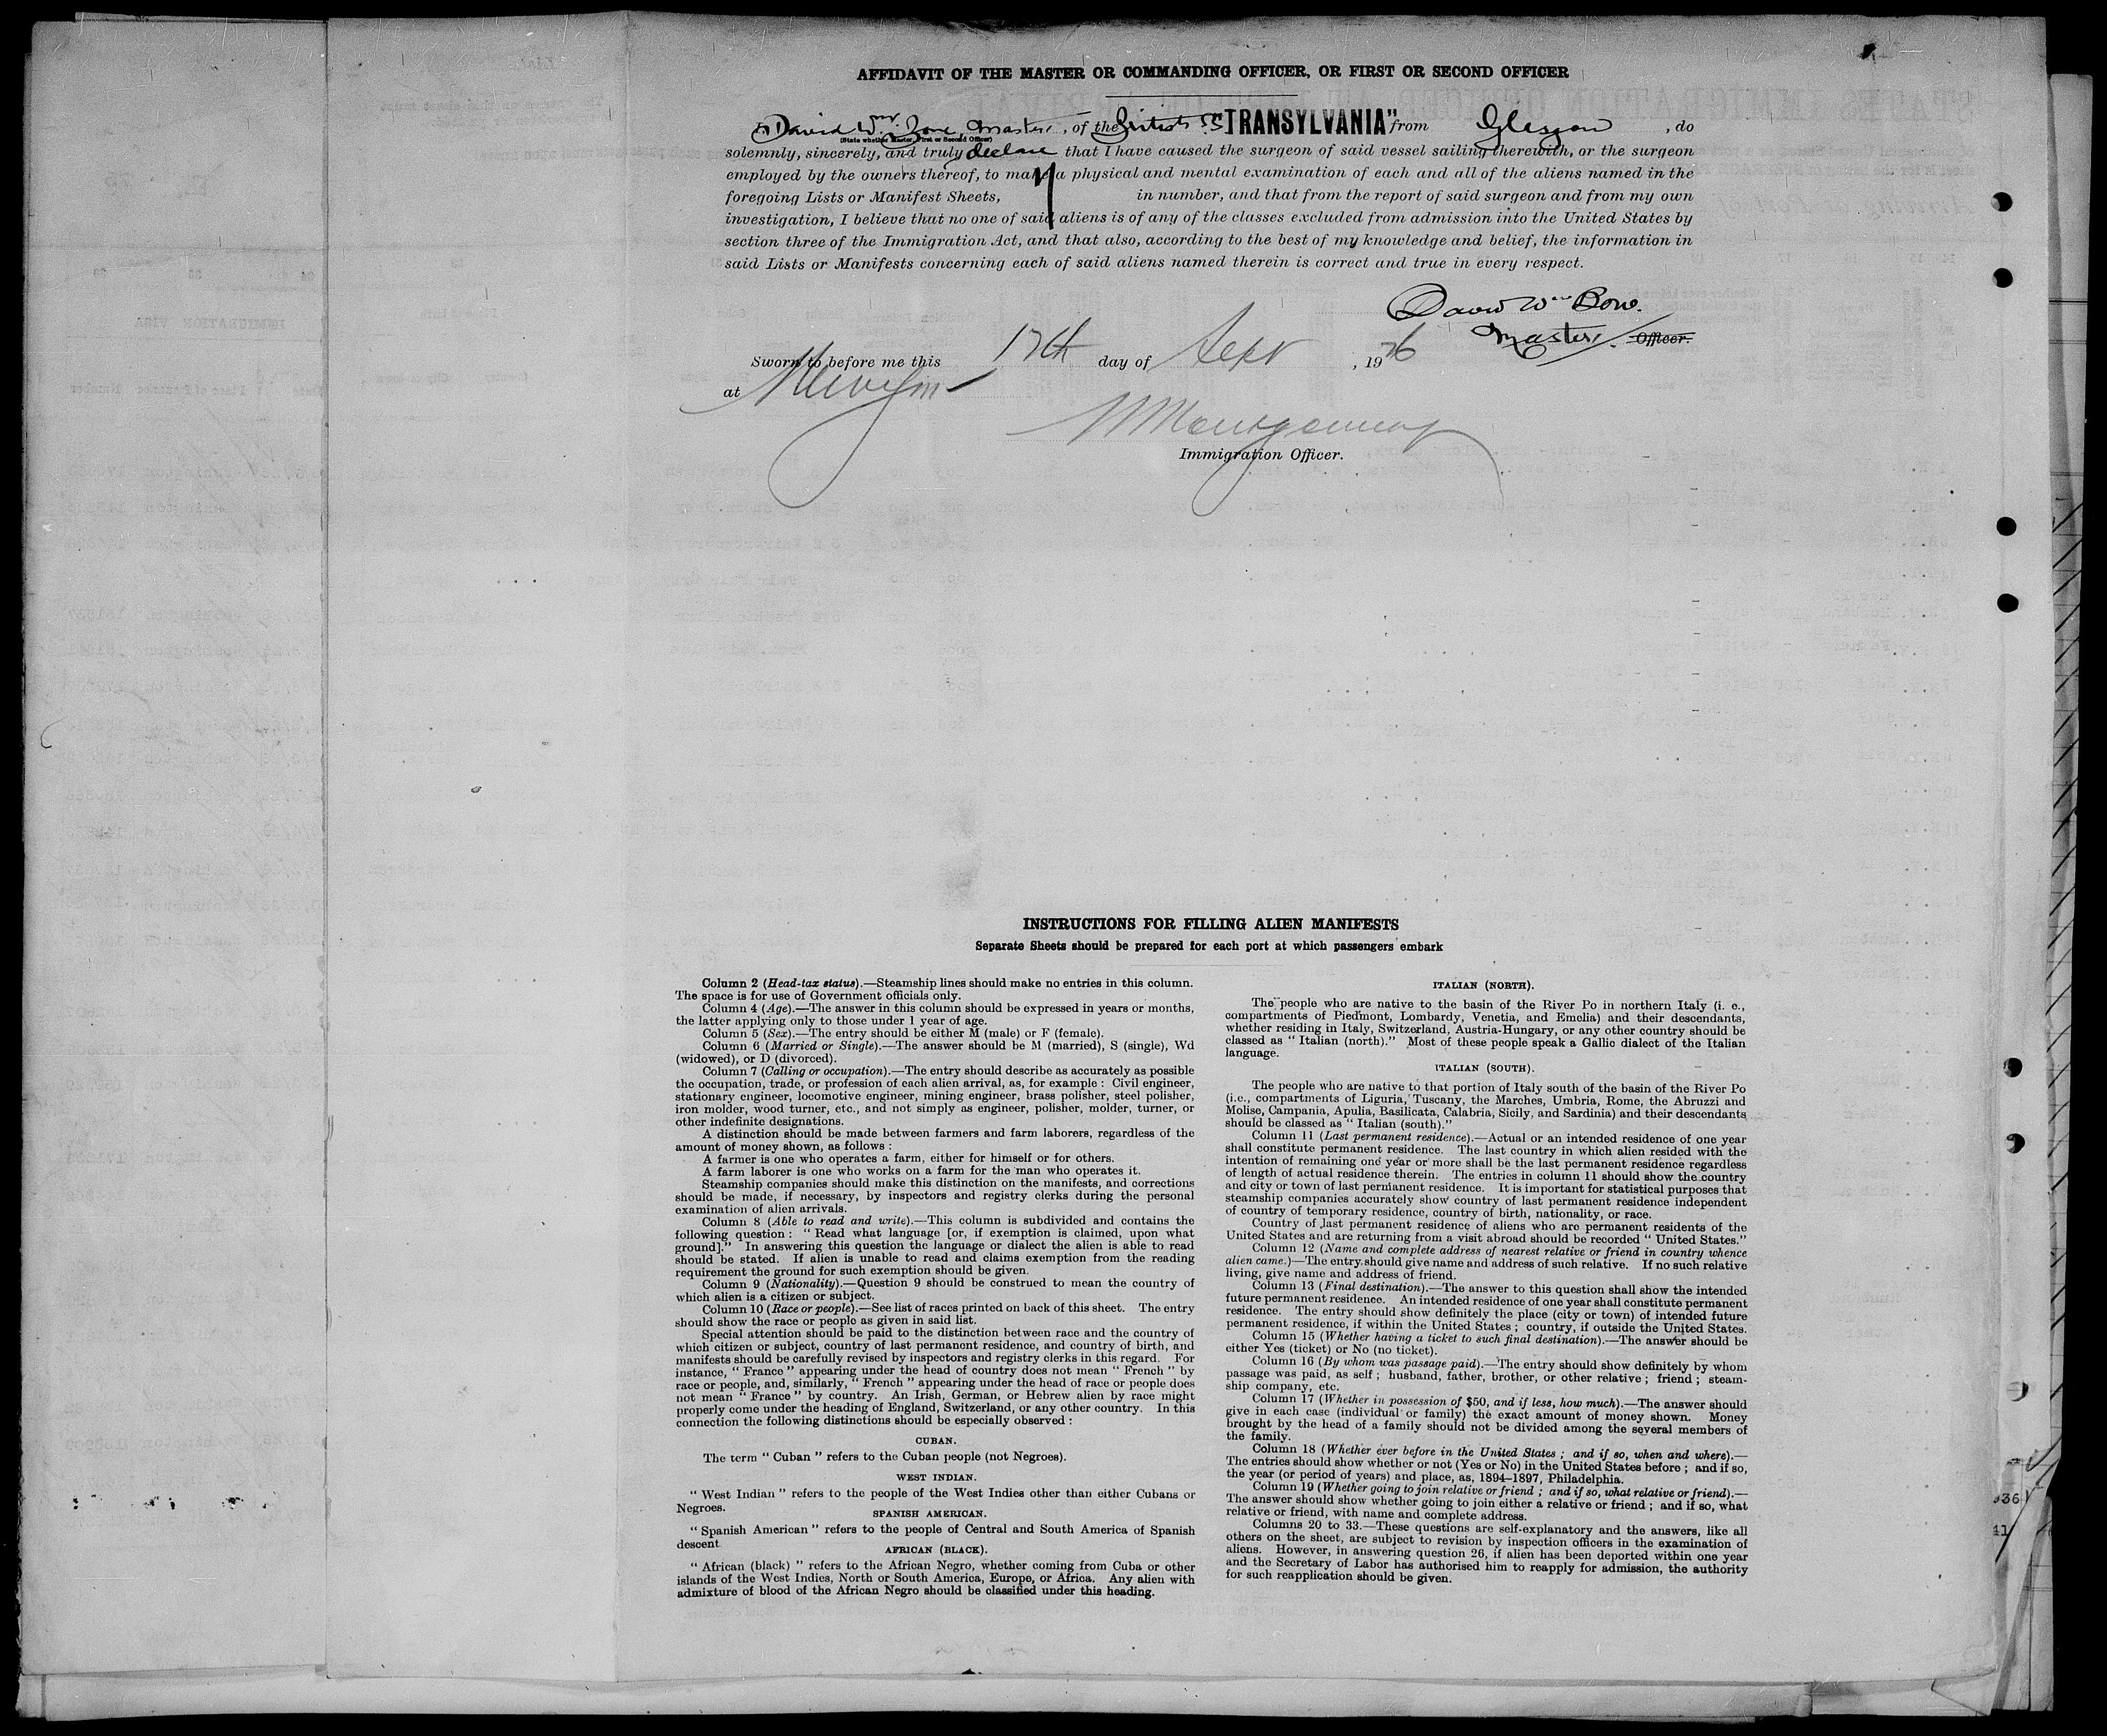 AFFIDAVIT OF THE MASTER OR COMMANDING OFFICER, OR FIRST OR SECOND OFFICER
I, David Wm. Bone, Master, of the British S.S. "TRANSYLVANIA" from Glasgow, do
(State whether Master, First or Second Officer)
solemnly, sincerely, and truly declare that I have caused the surgeon of said vessel sailing therewith, or the surgeon
employed by the owners thereof, to make a physical and mental examination of each and all of the aliens named in the
foregoing Lists or Manifest Sheets, in number, and that from the report of said surgeon and from my own
investigation, I believe that no one of said aliens is of any of the classes excluded from admission into the United States by
section three of the Immigration Act, and that also, according to the best of my knowledge and belief, the information in
said Lists or Manifests concerning each of said aliens named therein is correct and true in every respect.
David Wm Bone.
Master. Officer.
Sworn to before me this 17th day of Sept, 1926
at
Montgomery
Immigration Officer.
INSTRUCTIONS FOR FILLING ALIEN MANIFESTS
Separate Sheets should be prepared for each port at which passengers embark
Column 2 (Head-tax status).—Steamship lines should make no entries in this column.
The space is for use of Government officials only.
Column 4 (Age).—The answer in this column should be expressed in years or months,
the latter applying only to those under 1 year of age.
Column 5 (Sex).—The entry should be either M (male) or F (female).
Column 6 (Married or Single).—The answer should be M (married), S (single), Wd
(widowed), or D (divorced).
Column 7 (Calling or occupation).—The entry should describe as accurately as possible
the occupation, trade, or profession of each alien arrival, as, for example : Civil engineer,
stationary engineer, locomotive engineer, mining engineer, brass polisher, steel polisher,
iron molder, wood turner, etc., and not simply as engineer, polisher, molder, turner, or
other indefinite designations.
A distinction should be made between farmers and farm laborers, regardless of the
amount of money shown, as follows :
A farmer is one who operates a farm, either for himself or for others.
A farm laborer is one who works on a farm for the man who operates it.
Steamship companies should make this distinction on the manifests, and corrections
should be made, if necessary, by inspectors and registry clerks during the personal
examination of alien arrivals.
Column 8 (Able to read and write).—This column is subdivided and contains the
following question : " Read what language [or, if exemption is claimed, upon what
ground]." In answering this question the language or dialect the alien is able to read
should be stated. If alien is unable to read and claims exemption from the reading
requirement the ground for such exemption should be given.
Column 9 (Nationality).—Question 9 should be construed to mean the country of
which alien is a citizen or subject.
Column 10 (Race or people).—See list of races printed on back of this sheet. The entry
should show the race or people as given in said list.
Special attention should be paid to the distinction between race and the country of
which citizen or subject, country of last permanent residence, and country of birth, and
manifests should be carefully revised by inspectors and registry clerks in this regard. For
instance, " France " appearing under the head of country does not mean " French " by
race or people, and, similarly, " French " appearing under the head of race or people does
not mean " France " by country. An Irish, German, or Hebrew alien by race might
properly come under the heading of England, Switzerland, or any other country. In this
connection the following distinctions should be especially observed :
CUBAN.
The term " Cuban " refers to the Cuban people (not Negroes).
WEST INDIAN.
" West Indian " refers to the people of the West Indies other than either Cubans or
Negroes.
SPANISH AMERICAN.
" Spanish American " refers to the people of Central and South America of Spanish
descent
AFRICAN (BLACK).
" African (black) " refers to the African Negro, whether coming from Cuba or other
islands of the West Indies, North or South America, Europe, or Africa. Any alien with
admixture of blood of the African Negro should be classified under this heading.
ITALIAN (NORTH).
The people who are native to the basin of the River Po in northern Italy (i. e.,
compartments of Piedmont, Lombardy, Venetia, and Emelia) and their descendants,
whether residing in Italy, Switzerland, Austria-Hungary, or any other country should be
classed as " Italian (north)." Most of these people speak a Gallic dialect of the Italian
language.
ITALIAN (SOUTH).
The people who are native to that portion of Italy south of the basin of the River Po
(i.e., compartments of Liguria, Tuscany, the Marches, Umbria, Rome, the Abruzzi and
Molise, Campania, Apulia, Basilicata, Calabria, Sicily, and Sardinia) and their descendants
should be classed as " Italian (south)."
Column 11 (Last permanent residence).—Actual or an intended residence of one year
shall constitute permanent residence. The last country in which alien resided with the
intention of remaining one year or more shall be the last permanent residence regardless
of length of actual residence therein. The entries in column 11 should show the country
and city or town of last permanent residence. It is important for statistical purposes that
steamship companies accurately show country of last permanent residence independent
of country of temporary residence, country of birth, nationality, or race.
Country of last permanent residence of aliens who are permanent residents of the
United States and are returning from a visit abroad should be recorded " United States."
Column 12 (Name and complete address of nearest relative or friend in country whence
alien came.)—The entry should give name and address of such relative. If no such relative
living, give name and address of friend.
Column 13 (Final destination).—The answer to this question shall show the intended
future permanent residence. An intended residence of one year shall constitute permanent
residence. The entry should show definitely the place (city or town) of intended future
permanent residence, if within the United States ; country, if outside the United States.
Column 15 (Whether having a ticket to such final destination).—The answer should be
either Yes (ticket) or No (no ticket).
Column 16 (By whom was passage paid).—The entry should show definitely by whom
passage was paid, as self ; husband, father, brother, or other relative ; friend ; steam-
ship company, etc.
Column 17 (Whether in possession of $50, and if less, how much).—The answer should
give in each case (individual or family) the exact amount of money shown. Money
brought by the head of a family should not be divided among the several members of
the family.
Column 18 (Whether ever before in the United States ; and if so, when and where).—
The entries should show whether or not (Yes or No) in the United States before ; and if so,
the year (or period of years) and place, as, 1894–1897, Philadelphia.
Column 19 (Whether going to join relative or friend ; and if so, what relative or friend).—
The answer should show whether going to join either a relative or friend ; and if so, what
relative or friend, with name and complete address.
Columns 20 to 33.—These questions are self-explanatory and the answers, like all
others on the sheet, are subject to revision by inspection officers in the examination of
aliens. However, in answering question 26, if alien has been deported within one year
and the Secretary of Labor has authorised him to reapply for admission, the authority
for such reapplication should be given.